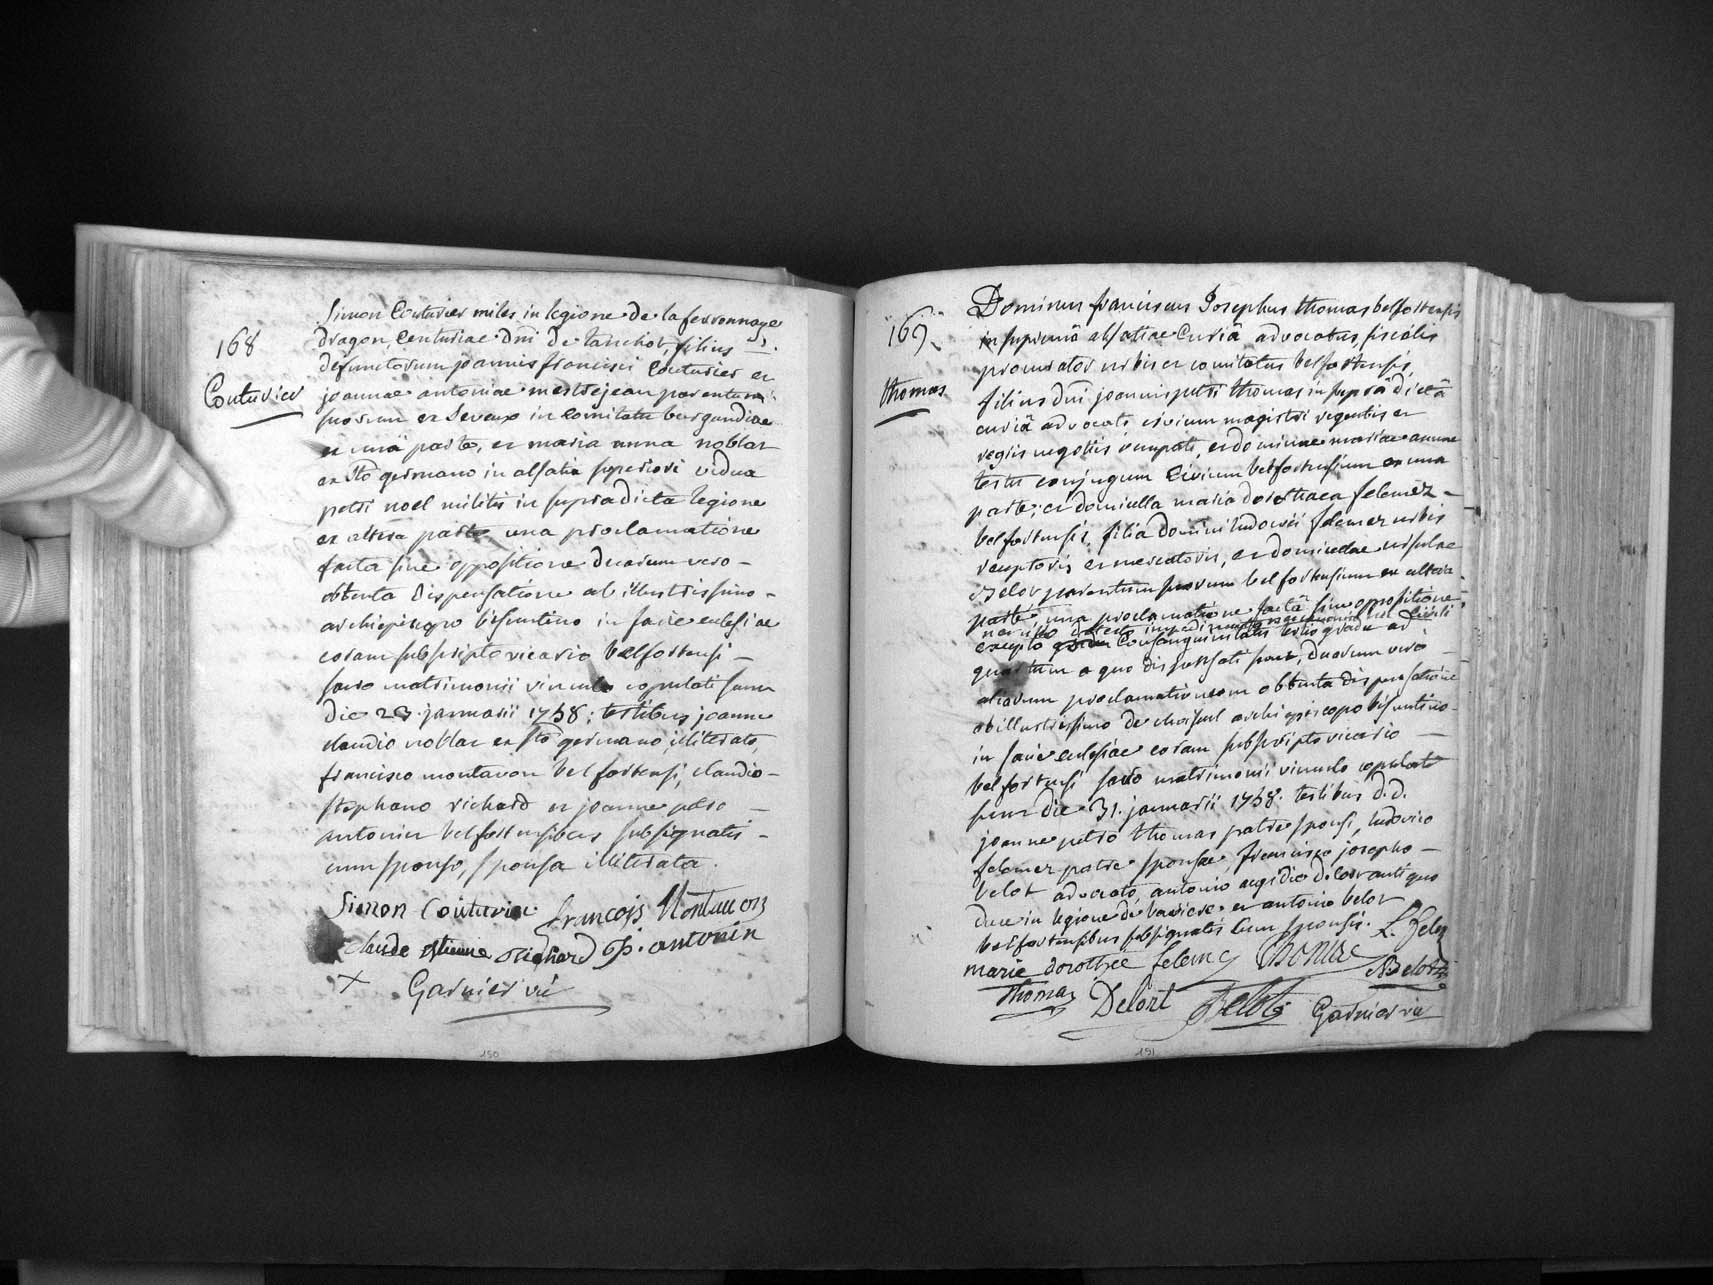 168
Couturier
Simon Couturier miles in legione de la ferronnaye
dragon, Centuriae Dni de tanchot, filius
defunctorum joannis francisci Couturier et
joannae antoniae mestrejean parentum
suorum ex Seveux in Comitatu burgundiae
ex una parte, et maria anna noblat
ex Sto germano in alsatia superiori vidua
petri noel militis in supradicta legione
ex altera parte, una proclamatione
facta sine oppositione duarum vero -
obtenta dispensatione ab illustrissimo -
archiepiscopo bisuntino in facie eclesiae
coram subscripto vicario belfortensi -
sacro matrimonii vinculo copulati sunt
die 23 januarii 1758; testibus joanne
claudio noblat ex Sto germano, illiterato,
francisco montavon belfortensi, claudio -
stephano richard et joanne petro -
antonin belfortensibus subsignatis -
cum sponso, sponsa illiterata.
Simon Couturie François Montauon
claude etienne richard JP. antonin
X Garnier vic
150
169.
thomas
Dominus franciscus Josephus thomas belfortensis
in supremâ alsatiae Curiâ advocatus, fiscalis
procurator urbis et comitatus belfortensis,
filius dni joannis petri thomas in suprâ dictâ
curiâ advocati, civium magistri regentis et
regiis negotiis occupati, et dominae mariae annae
conjugum Civium belfortensium ex una
parte; et domicella maria dorothaea felemez -
belfortensis, filia Domini ludovici felemez urbis
receptoris et mercatoris, et domicellae ursulae
Belot parentum suorum belfortensium ex altera
parte, una proclamatione factâ sine oppositione
nec ullo detecto impedimento
excepto Consanguinitatis tertio gradu ad
quartum a quo dispensati sunt, duarum vero -
aliarum proclamationum obtenta dispensatione
ab illustrissimo de choiseul archiepiscopo bisuntino -
in facie eclesiae coram subscripto vicario -
belfortensi sacro matrimonii vinculo copulati
sunt die 31. januarii 1758. testibus d.d.
joanne petro thomas patre sponsi, ludovico
felemez patre sponsae, francisco josepho -
belot advocato, antonio aegidio delort antiquo
duce in legione de baviere et antonio belot
belfortensibus subsignatis cum sponsis.
L. Felez
marie dorothee felemez Thomas ABelot
Thomas Delort Belot Garnier vic
191